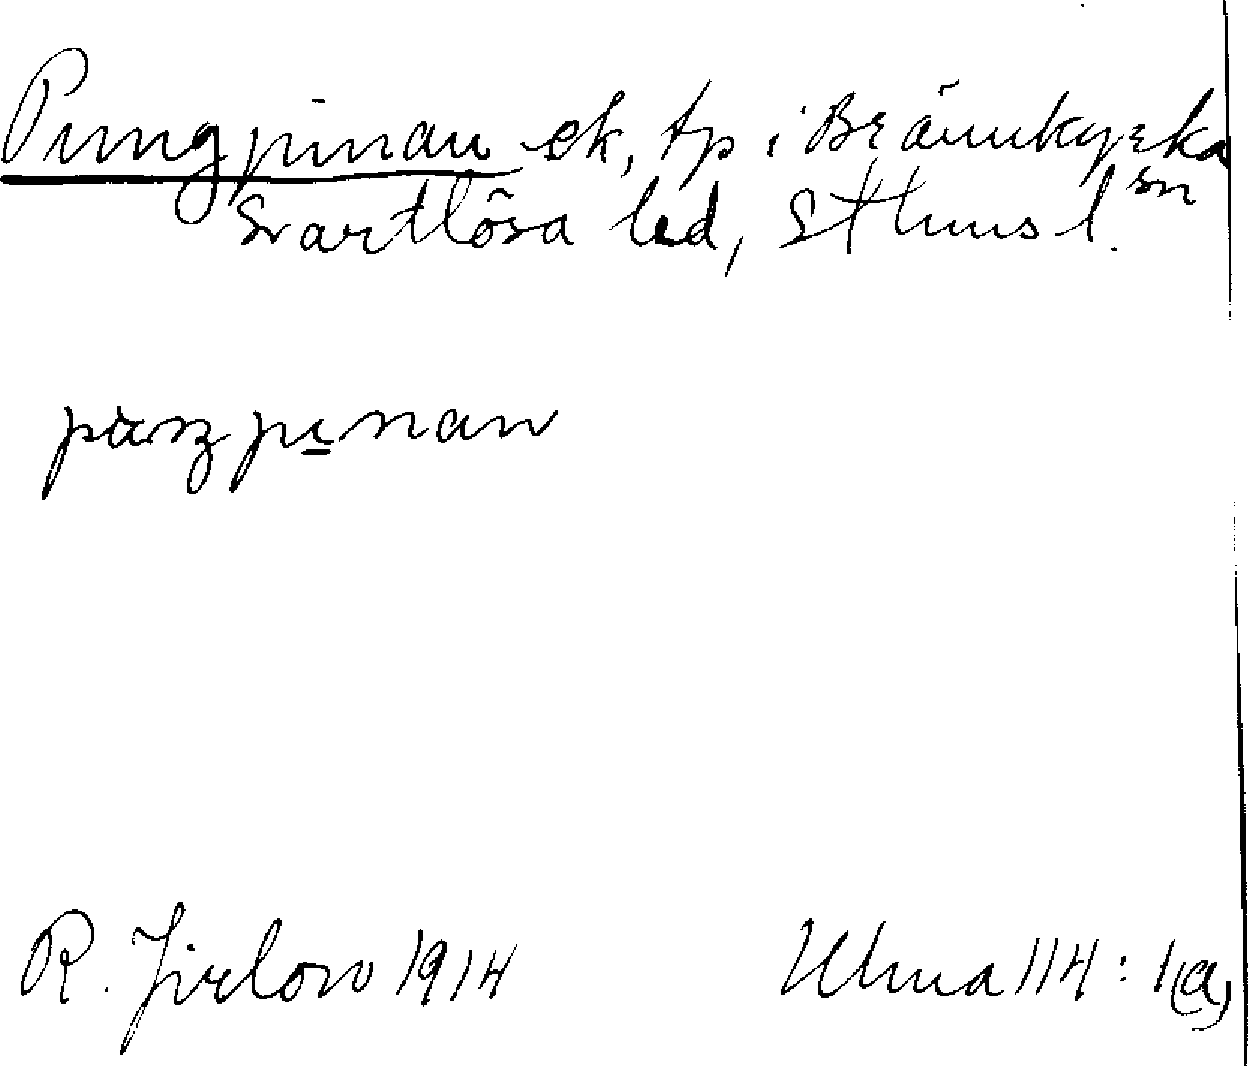 Pungpinan ek, tp i Brännkyrka sn
Svartlösa hd, Sthms l.
puŋpi̱nan
R. Jirlow 1914
Ulma 114:1(a)